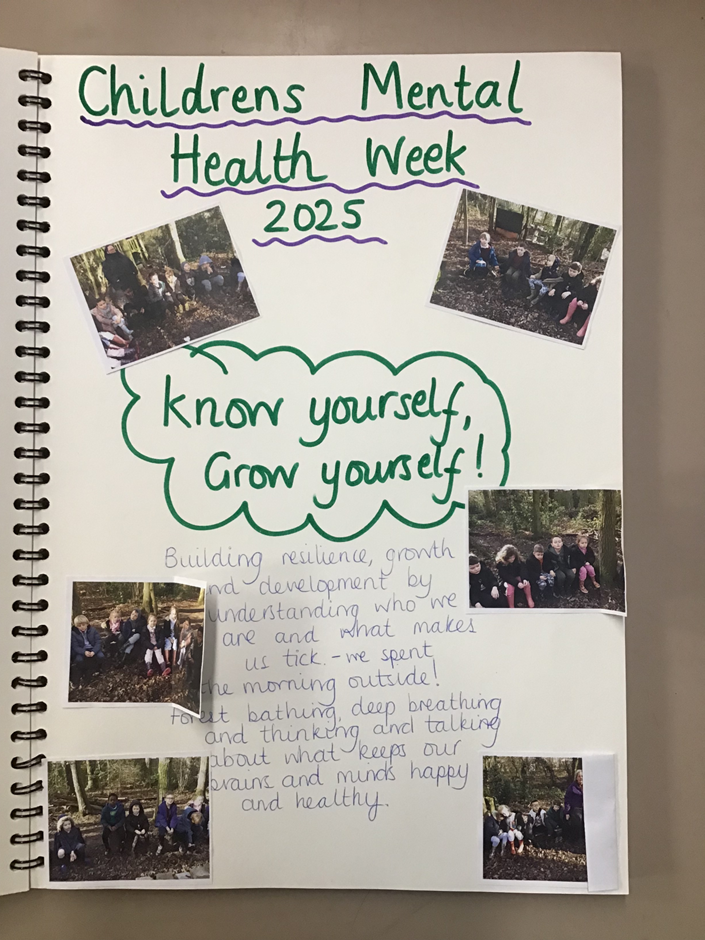 Childrens Mental
Health Week
2025
know yourself,
Grow yourself!
Building resilience, growth
nd development by
understanding who we
are and what makes
us tick. - we spent
the morning outside!
Forest bathing, deep breathing
and thinking and talking
about what keeps our
brains and minds happy
and healthy.